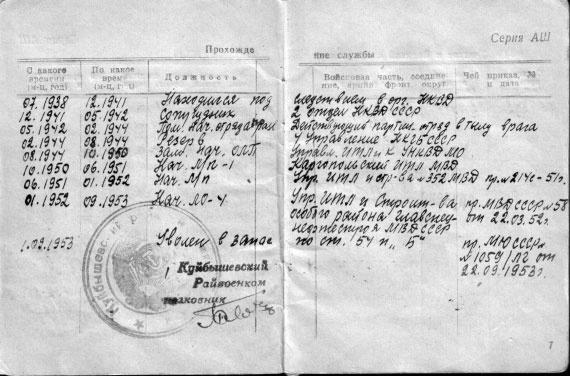 Серия АШ
Прохожде ние службы
С какого времени (м-ц, год) По какое время (м-ц, г д) Должность Войсковая часть, соедине ние, армия фронт, округ Чей приказ, № и дата
07.1938 12.1941 Находился под следствием в орг. НКВД
12.1941 05.1942 Сотрудник 2 отдел НКВД СССР
05.1942 02.1944 Нач. отряда Действующий партиз. отряд в тылу врага
02.1944 08.1944 Резерв Управление НКГБ СССР
08.1944 10.1950 Зам. Нач. ОЛП Управл. ИТЛ и К УНКВД МО
10.1950 06.1951 Нач. МП-1 Каргопольский ИТЛ МВД
06.1951 01.1952 Нач. МП Упр. ИТЛ и стр-ва №352 МВД пр. №2146-51г.
01.1952 09.1953 Нач. ЛО-4 Упр. ИТЛ и Строит-ва пр. МВД СССР №58
особого района Главспец- от 22.03.52г.
нефтестроя МВД СССР
1.09.1953 Уволен в запас по ст. 54 п. „Б" пр. МЮ СССР
№1059/ЛГ от
22.09.1953г.
Куйбышевский
Райвоенком
полковник
7